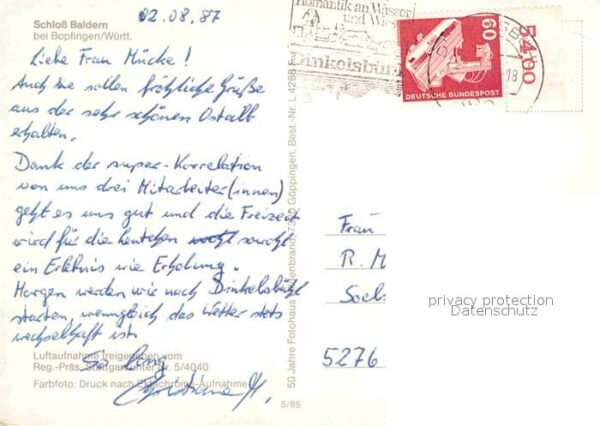 Schloß Baldern
bei Bopfingen/Württ.
02.08.87
Liebe Frau Mücke!
Auch Sie sollen fröhliche Grüße
aus der sehr schönen Ostalb
erhalten.
Dank der super-Korrelation
von uns drei Mitarbeiter(innen)
geht es uns gut und die Freizeit
wird für die sowohl
ein Erlebnis wie Erholung.
Morgen werden wir nach Dinkelsbühl
starten, wenngleich das Wetter stets
wechselhaft ist.
So long
Christiane M.
Luftaufnahme freigegeben vom
Reg.-Präs. Stuttgart unter Nr. 5/4040
Farbfoto: Druck nach Ektachrome-Aufnahme
5/85
50 Jahre Fotohaus 7320 Göppingen, Best.-Nr. L 4268
Romantik an Wasser
und Wiese
Dinkelsbühl
60
DEUTSCHE BUNDESPOST
5400
18
Frau
R. M
Soels
5276
privacy protection
Datenschutz